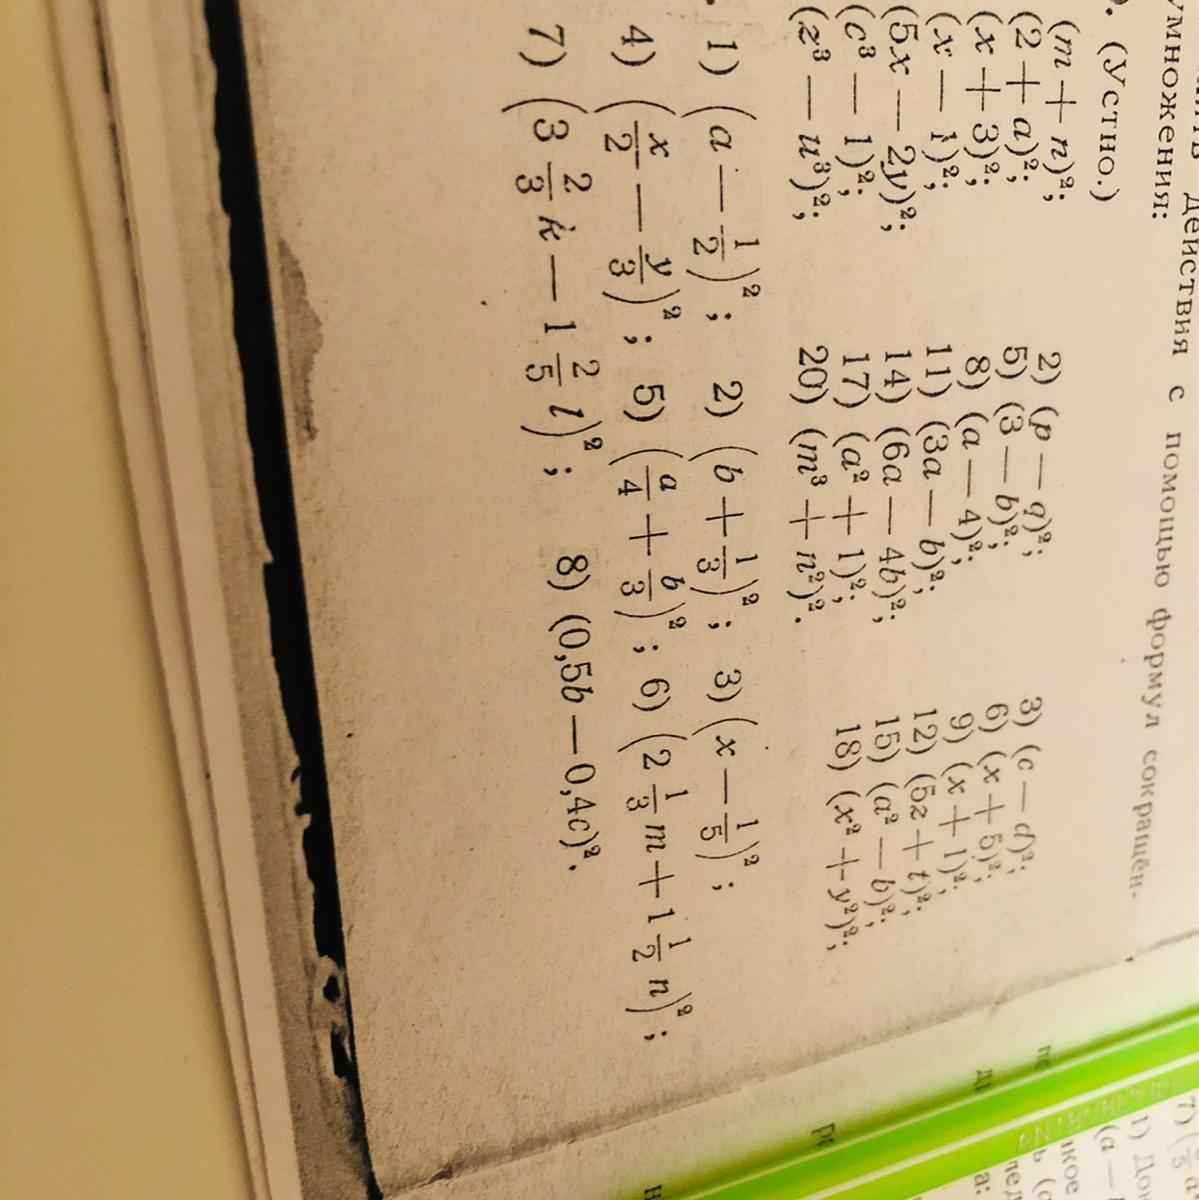 действия с помощью формул сокращён-
умножения:
(Устно.)
(m + n)²; 2) (p — q)²; 3) (c — d)²;
(2 + a)²; 5) (3 — b)²; 6) (x + 5)²;
(x + 3)²; 8) (a — 4)²; 9) (x + 1)²;
(x — 1)²; 11) (3a — b)²; 12) (5z + t)²;
(5x — 2y)²; 14) (6a — 4b)²; 15) (a² — b)²;
(c³ — 1)²; 17) (a² + 1)²; 18) (x² + y²)²;
(z³ — u³)²; 20) (m³ + n²)².
1) (a — 1/2)²; 2) (b + 1/3)²; 3) (x — 1/5)²;
4) (x/2 — y/3)²; 5) (a/4 + b/3)²; 6) (2 1/3 m + 1 1/2 n)²;
7) (3 2/3 k — 1 2/5 l)²; 8) (0,5b — 0,4c)².